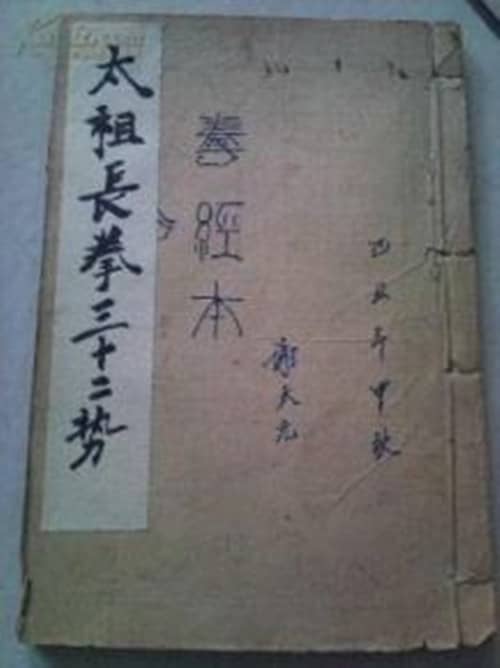 太祖長拳三十二势
拳經本
天元
年中秋